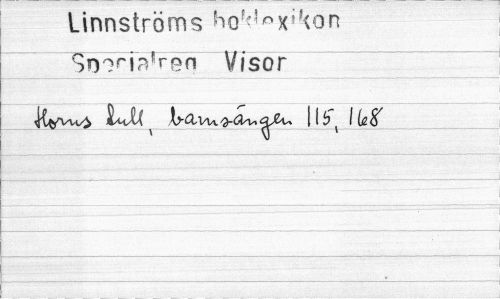 Linnströms boklexikon
Specialreg Visor
Horns Lull, barnsången 115, 168